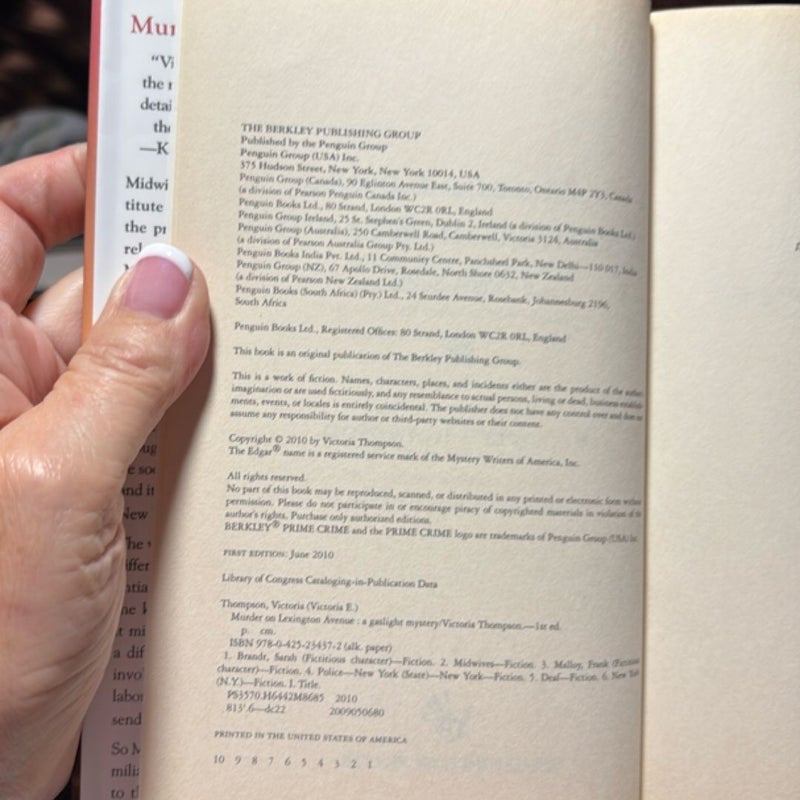 Mur
"Vi
the r
detai
the
—K
Midwi
titute
the pr
rel
THE BERKLEY PUBLISHING GROUP
Published by the Penguin Group
Penguin Group (USA) Inc.
375 Hudson Street, New York, New York 10014, USA
Penguin Group (Canada), 90 Eglinton Avenue East, Suite 700, Toronto, Ontario M4P 2Y3, Canada
(a division of Pearson Penguin Canada Inc.)
Penguin Books Ltd., 80 Strand, London WC2R 0RL, England
Penguin Group Ireland, 25 St. Stephen's Green, Dublin 2, Ireland (a division of Penguin Books Ltd.)
Penguin Group (Australia), 250 Camberwell Road, Camberwell, Victoria 3124, Australia
(a division of Pearson Australia Group Pty. Ltd.)
Penguin Books India Pvt. Ltd., 11 Community Centre, Panchsheel Park, New Delhi—110 017, India
Penguin Group (NZ), 67 Apollo Drive, Rosedale, North Shore 0632, New Zealand
(a division of Pearson New Zealand Ltd.)
Penguin Books (South Africa) (Pty.) Ltd., 24 Sturdee Avenue, Rosebank, Johannesburg 2196,
South Africa
Penguin Books Ltd., Registered Offices: 80 Strand, London WC2R 0RL, England
This book is an original publication of The Berkley Publishing Group.
This is a work of fiction. Names, characters, places, and incidents either are the product of the author
imagination or are used fictitiously, and any resemblance to actual persons, living or dead, business establish-
ments, events, or locales is entirely coincidental. The publisher does not have any control over and does no
assume any responsibility for author or third-party websites or their content.
Copyright © 2010 by Victoria Thompson.
The Edgar® name is a registered service mark of the Mystery Writers of America, Inc.
All rights reserved.
No part of this book may be reproduced, scanned, or distributed in any printed or electronic form without
permission. Please do not participate in or encourage piracy of copyrighted materials in violation of the
author's rights. Purchase only authorized editions.
BERKLEY® PRIME CRIME and the PRIME CRIME logo are trademarks of Penguin Group (USA) Inc.
FIRST EDITION: June 2010
Library of Congress Cataloging-in-Publication Data
Thompson, Victoria (Victoria E.)
Murder on Lexington Avenue : a gaslight mystery/Victoria Thompson.—1st ed.
p. cm.
ISBN 978-0-425-23437-2 (alk. paper)
1. Brandt, Sarah (Fictitious character)—Fiction. 2. Midwives—Fiction. 3. Malloy, Frank (Fictitious
character)—Fiction. 4. Police—New York (State)—New York—Fiction. 5. Deaf—Fiction. 6. New York
(N.Y.)—Fiction. I. Title.
PS3570.H6442M8685 2010
813'.6—dc22 2009050680
PRINTED IN THE UNITED STATES OF AMERICA
10 9 8 7 6 5 4 3 2 1
nd it
New
The
iffer
t mi
a dif
invo
labor
send
So M
milia
to t